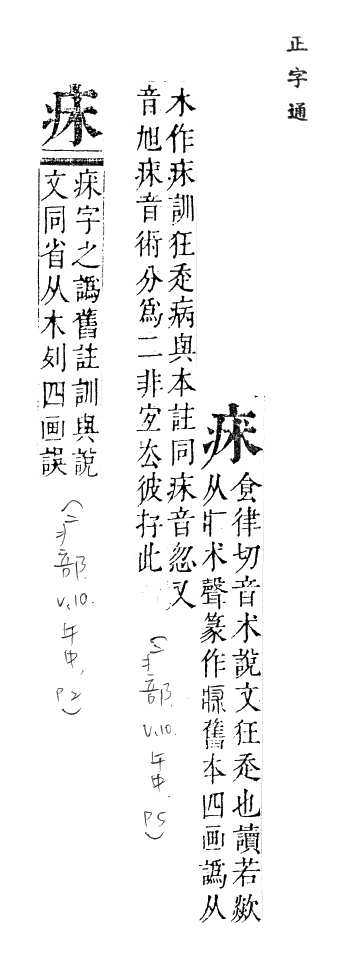 正字通
𤵜
食律切音术說文狂𡗜也讀若欻
从疒术聲篆作舊本四画譌从
木作訓狂𡗜病與本註同𤵜音忽又
音旭𤵜音術分爲二非宐厺彼存此
(二疒部 V.10. 午中, P5)
𤵜字之譌舊註訓與說
文同省从木列四画誤
(二疒部 V.10. 午中, P2)